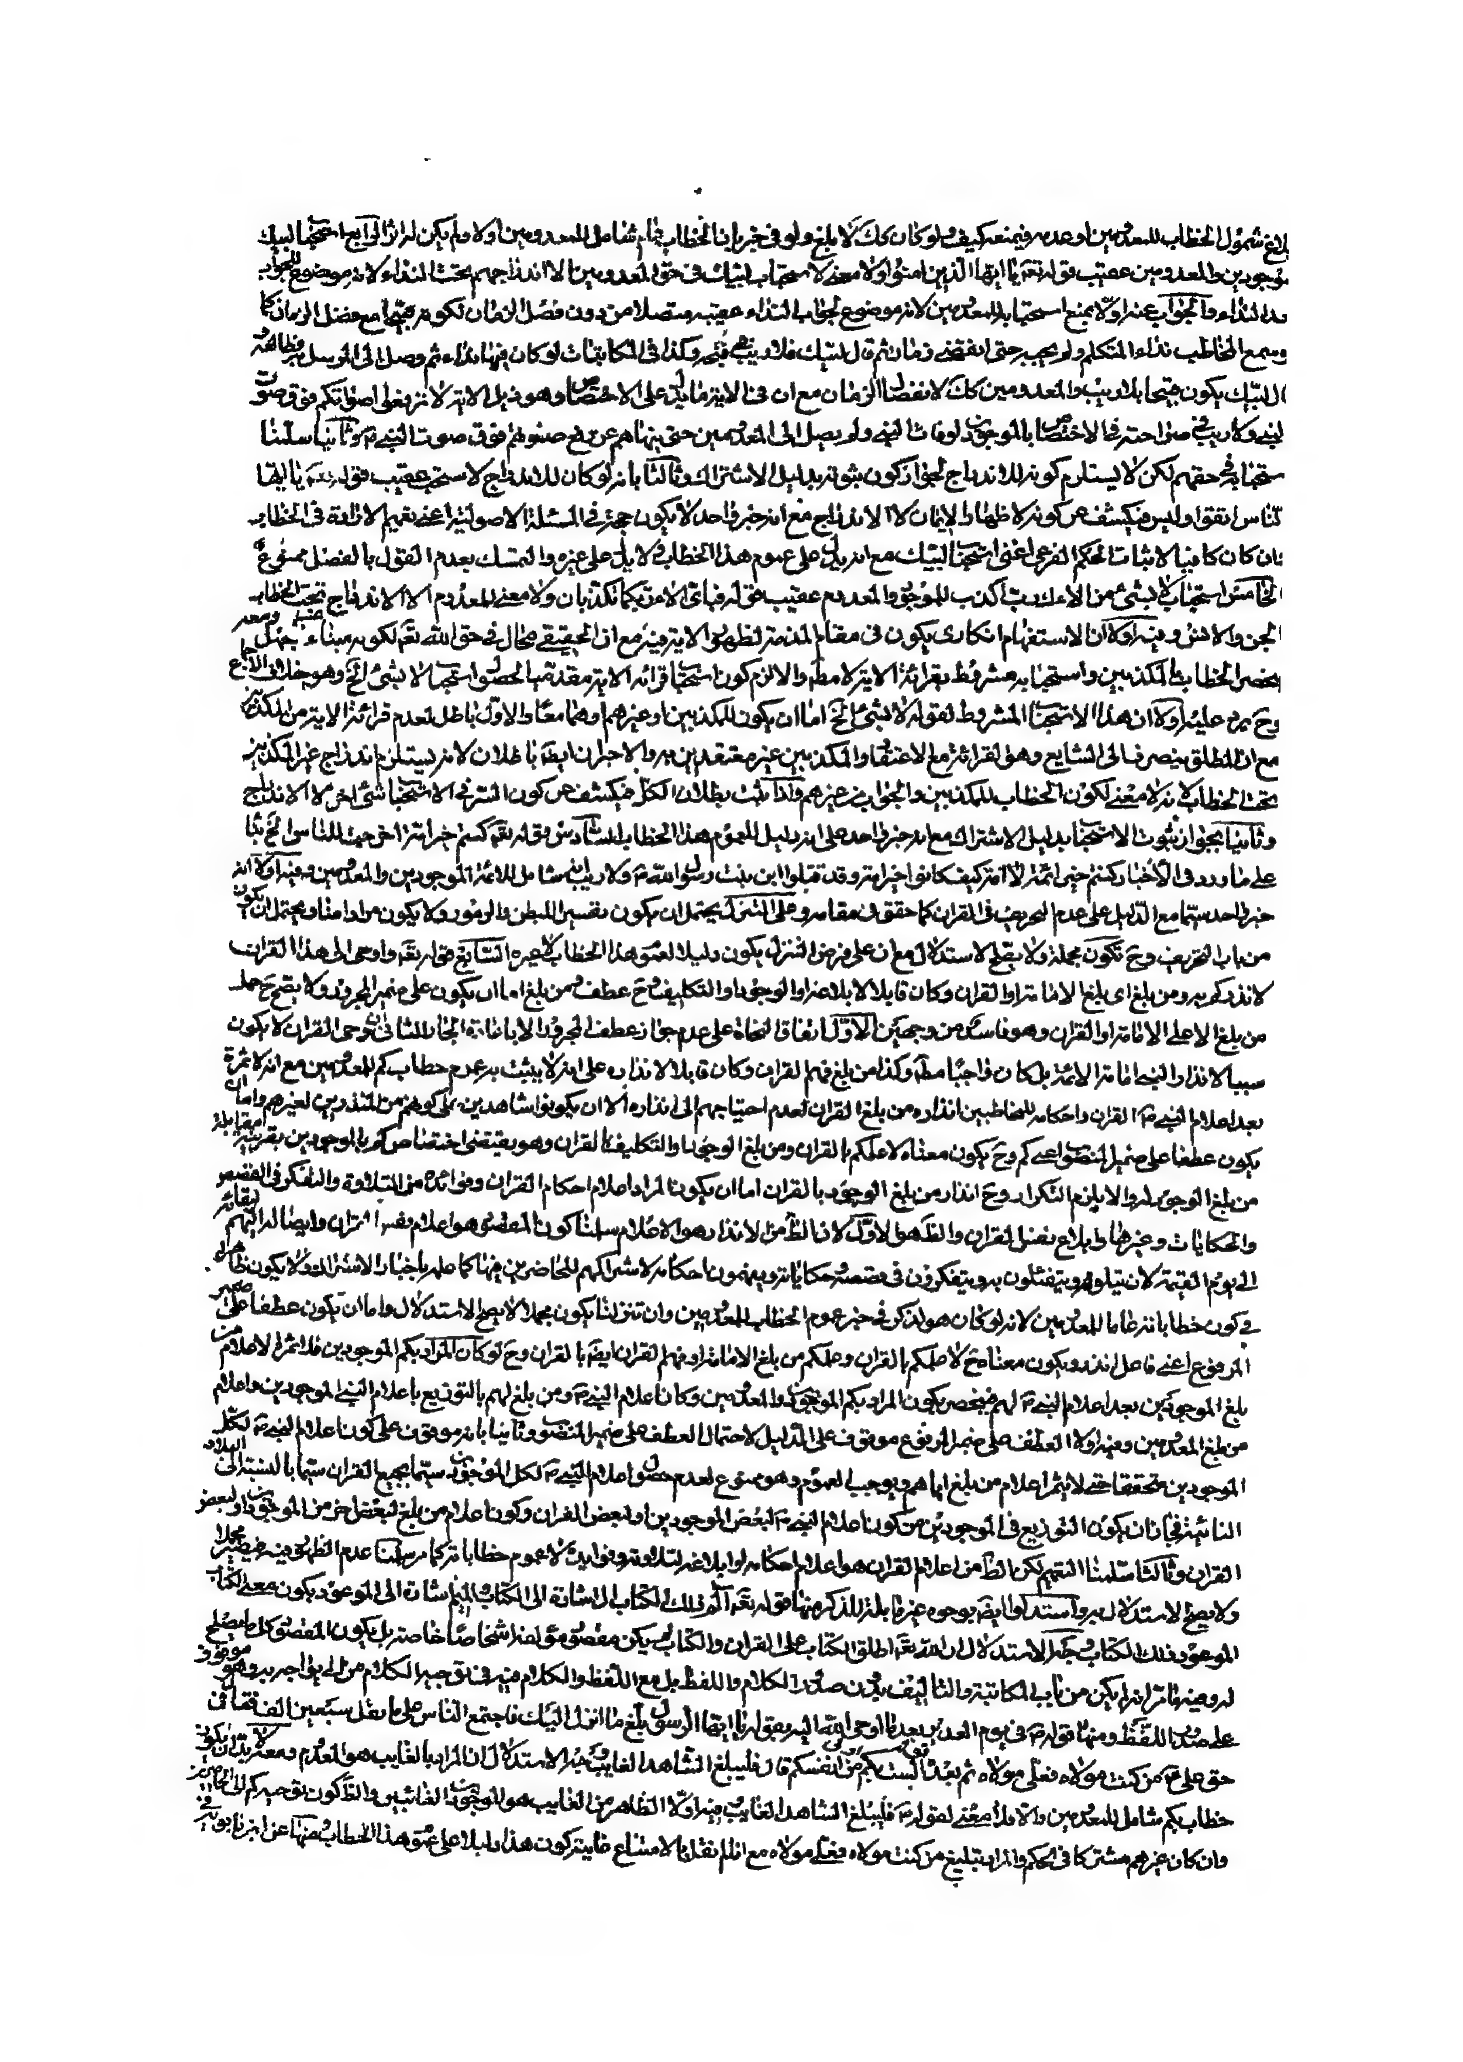 بلاغ شمول الخطاب للمعدومين او عدمه فيمنعه كيف ولو كان كك لا بلغ ولو فى خبر بان الخطاب شامل للمعدومين اولا ولم يكن له اثر الرابع استحباب لبيك
موجودين والمعدومين عقيب قوله تعه يا ايها الذين امنوا ولا معنى لاستحباب لبيك فى حق المعدومين الا اندراجهم تحت النداء لانه موضوع للجواب
هذا النداء والجواب عنه اولا بمنع استحبابه للمعدومين لانه موضوع لجواب النداء عقيبه متصلا من دون فصل الزمان لكونه قبيحا مع فصل الزمان كما
وسمع المخاطب نداء المتكلم ولم يجبه حتى انقضى زمان ثم قال لبيك فلا ريب فى قبحه وكذا فى المكاتبات لو كان فيها نداء ثم وصل الى المرسل
ال لبيك يكون قبيحا بلا ريب والمعدومين كك لانفصال الزمان مع ان فى الاية ما يدل على الاختصاص وهو ذيل الاية لا ترفعوا اصواتكم فوق صوت
النبى ولا ريب فى صراحته فى الاختصاص بالموجودين لوفات النبى ولم يصل الى المعدومين حتى ينهاهم عن رفع صوتهم فوق صوت النبى ص وثانيا سلمنا
ستحبابه فى حقهم لكن لا يستلزم كونه للاندراج لجواز كون ثبوته بدليل الاشتراك وثالثا بانه لو كان للاندراج لاستحب عقيب قوله تعه يا ايها
لناس اتقوا وليس فيكشف عن كونه لاظهار الايمان لا الاندراج مع انه خبر واحد لا يكون حجة فى المسئلة الاصولية اعنى تعميم الارادة فى الخطاب
وان كان كافيا لاثبات الحكم الفرعى اعنى استحباب لبيك مع انه يدل على عموم هذا الخطاب ولا يدل على غيره والتمسك بعدم القول بالفصل ممنوع
الخامس استحباب لا بشئ من الائك رب اكذب للموجود والمعدوم عقيب قوله فباى الاء ربكما تكذبان ولا معنى للمعدوم الا الاندراج تحت الخطاب
الجن والانس وفيه اولا ان الاستفهام انكارى يكون فى مقام المذمة لظهور الاية فيه مع ان الحقيقى محال فى حق الله تعه لكونه مبناه جهل
يحضر الخطاب بالمكذبين واستحبابه مشروط بقرائة الاية لا مطه والا لزم كون استحباب قرائة الاية مقدمة لحصول استحباب لا بشئ الخ وهو خلاف الاجماع
وح يرد عليه اولا ان هذا الاستحباب المشروط لقوله لا بشئ الخ اما ان يكون للمكذبين او غيرهم او هما معا والاول باطل لعدم قرائة الاية من المكذبين
مع ان المطلق ينصرف الى الشايع وهو القرائة مع الاعتقاد والمكذبين غير معتقدين به والاخران ايضه باطلان لانه يستلزم اندراج غير المكذبين
تحت الخطاب لانه لا معنى لكون الخطاب للمكذبين والجواب من غيرهم واذا ثبت بطلان الكل فيكشف عن كون السر فى الاستحباب شئ اخر لا الاندراج
وثانيا بجواز ثبوت الاستحباب بدليل الاشتراك مع انه خبر واحد على انه دليل للعموم هذا الخطاب السادس قوله تعه كنتم خير امة اخرجت للناس الخ بناء
على ما ورد فى الاخبار كنتم خير ائمة لا امة كيف كانوا خير امة وقد قتلوا ابن بنت رسول الله ص ولا ريب انه شامل للائمة الموجودين والمعدومين وفيه اولا انه
خبر واحد سيما مع الدليل على عدم التحريف فى القران كما حقق فى مقامه وعلى التنزل يحتمل ان يكون تفسير البطن والرموز ولا يكون مرادا منا ويحتمل ان يكون
من باب التحريف وح تكون مجملة ولا يصح الاستدلال مع ان على فرض التنزل يكون دليلا لعموم هذا الخطاب لا غيره السابع قوله تعه واوحى الى هذا القران
لانذركم به ومن بلغ اى بلغ الامامة او القران وكان قابلا لابلاغه او الوجود او التكليف وح عطف ومن بلغ اما ان يكون على ضمير المجرور ولا يصح ح حمله
من بلغ الا على الامامة او القران وهو فاسد من وجهين الاول اتفاق النحاة على عدم جواز عطف المجرور الا باعادة الجار الثانى ان وحى القران لا يكون
سببا لانذار النبى امامة الائمة بل كان واجبا مطه وكذا من بلغ فهم القران وكان قابلا لانذاره على انه لا يثبت به عموم خطاب كم للمعدومين مع انه لا ثمرة
بعد اعلام النبى ص القران واحكامه للمخاطبين انذاره من بلغ القران لعدم احتياجهم الى انذاره الا ان يكونوا شاهدين على كونهم من المنذرين لغيرهم واما ان
يكون عطفا على ضمير المنصوب اعنى كم وح يكون معناه لاعلمكم بالقران ومن بلغ الوجود او التكليف بالقران وهو يقتضى اختصاص كم بالموجودين بقرينة مقابلة
من بلغ الوجود له والا يلزم التكرار وح انذار من بلغ الوجود بالقران اما ان يكون المراد اعلام احكام القران وفوائده من التلاوة والتفكر فى القصص
والحكايات وغيرها وابلاغ نفس القران والظ هو الاول لان الظ من الانذار هو الاعلام سلمنا كون المقصود هو اعلام نفس القران وايصاله اليهم لبقائه
الى يوم القيمة لان يتلوه ويتفئلون به ويتفكرون فى قصصه وحكاياته ويفهمون احكامه لاشتراكهم للحاضرين فيها كما علم باخبار الاشتراك ولا يكون ظاهرا
فى كون خطاباته عاما للمعدومين لانه لو كان هو لذكر فى خبر عموم الخطاب للمعدومين وان تنزلنا يكون مجملا لا يصح الاستدلال واما ان يكون عطفا على ضمير
المرفوع اعنى فاعل انذر ويكون معناه ح لاعلمكم بالقران وعلمكم من بلغ الامامة او فهم القران ايضه بالقران وح لو كان المراد بكم الموجودين فلا ثمرة لاعلام من
بلغ الموجودين بعد اعلام النبى ص لهم فينحصر بكون المراد بكم الموجودين والمعدومين وكان اعلام النبى ص ومن بلغ لهم بالتوزيع باعلام النبى الموجودين واعلام
من بلغ المعدومين وفيه اولا العطف على ضمير المرفوع موقوف على الدليل لاحتمال العطف على ضمير المنصوب وثانيا بانه موقوف على كون اعلام النبى ص لكل
الموجودين متحققا حتى لا يثمر اعلام من بلغ اياهم ويوجب العموم وهو ممنوع لعدم حصول اعلام النبى ص لكل الموجودين سيما بجميع القران سيما بالنسبة الى البلاد
النائية فجاز ان يكون التوزيع فى الموجودين من كون اعلام النبى ص لبعض الموجودين او لبعض القران وكون اعلام من بلغ لبعض اخر من الموجودين او لبعض
القران وثالثا سلمنا التعميم لكن الظ من اعلام القران هو اعلام احكامه او ابلاغه لتلاوته وفوائده لا عموم خطاباته كما مر سلمنا عدم الظهور فيه فيصير مجملا
ولا يصح الاستدلال به واستدلوا ايضه بوجوه غير قابلة للذكر منها قوله تعه الم ذلك الكتاب اى اشارة الى الكتاب اشارة الى الموعود يكون معنى الكتاب
الموعود ذلك الكتاب وجه الاستدلال ان الله تعه اطلق الكتاب على القران والكتاب لم يكن مقصود مؤلفه اشخاصا خاصة بل يكون المقصود كل ما يصلح
له وفيه ما مر انه لم يكن من باب المكاتبة والتاليف بل من صدور الكلام واللفظ بل مع اللفظ والكلام فيه فى توجيه الكلام من الى يواجه به وهو موقوف
على صدور اللفظ ومنها قوله ص فى يوم الغدير بعد ما اوحى الله اليه بقوله يا ايها الرسول بلغ ما انزل اليك فاجتمع الناس على ما نقل سبعين الف فقال فى
حق على ع من كنت مولاه فعلى مولاه ثم بعد الست بكم من انفسكم قال فليبلغ الشاهد الغايب وجه الاستدلال ان المراد بالغايب هو المعدوم ومعه لا بد ان يكون
خطاب بكم شامل للمعدومين والا فلا معنى لقوله ص فليبلغ الشاهد الغايب وفيه اولا الظاهر من الغايب هو الموجودين الغائبين والظ كون توجيه كم الى الحاضرين
وان كان غيرهم مشتركا فى الحكم والمراد تبليغ من كنت مولاه فعلى مولاه مع انا لم نقل بالامتناع غايته كون هذا دليلا على عموم هذا الخطاب منها عن ابن بابويه فى